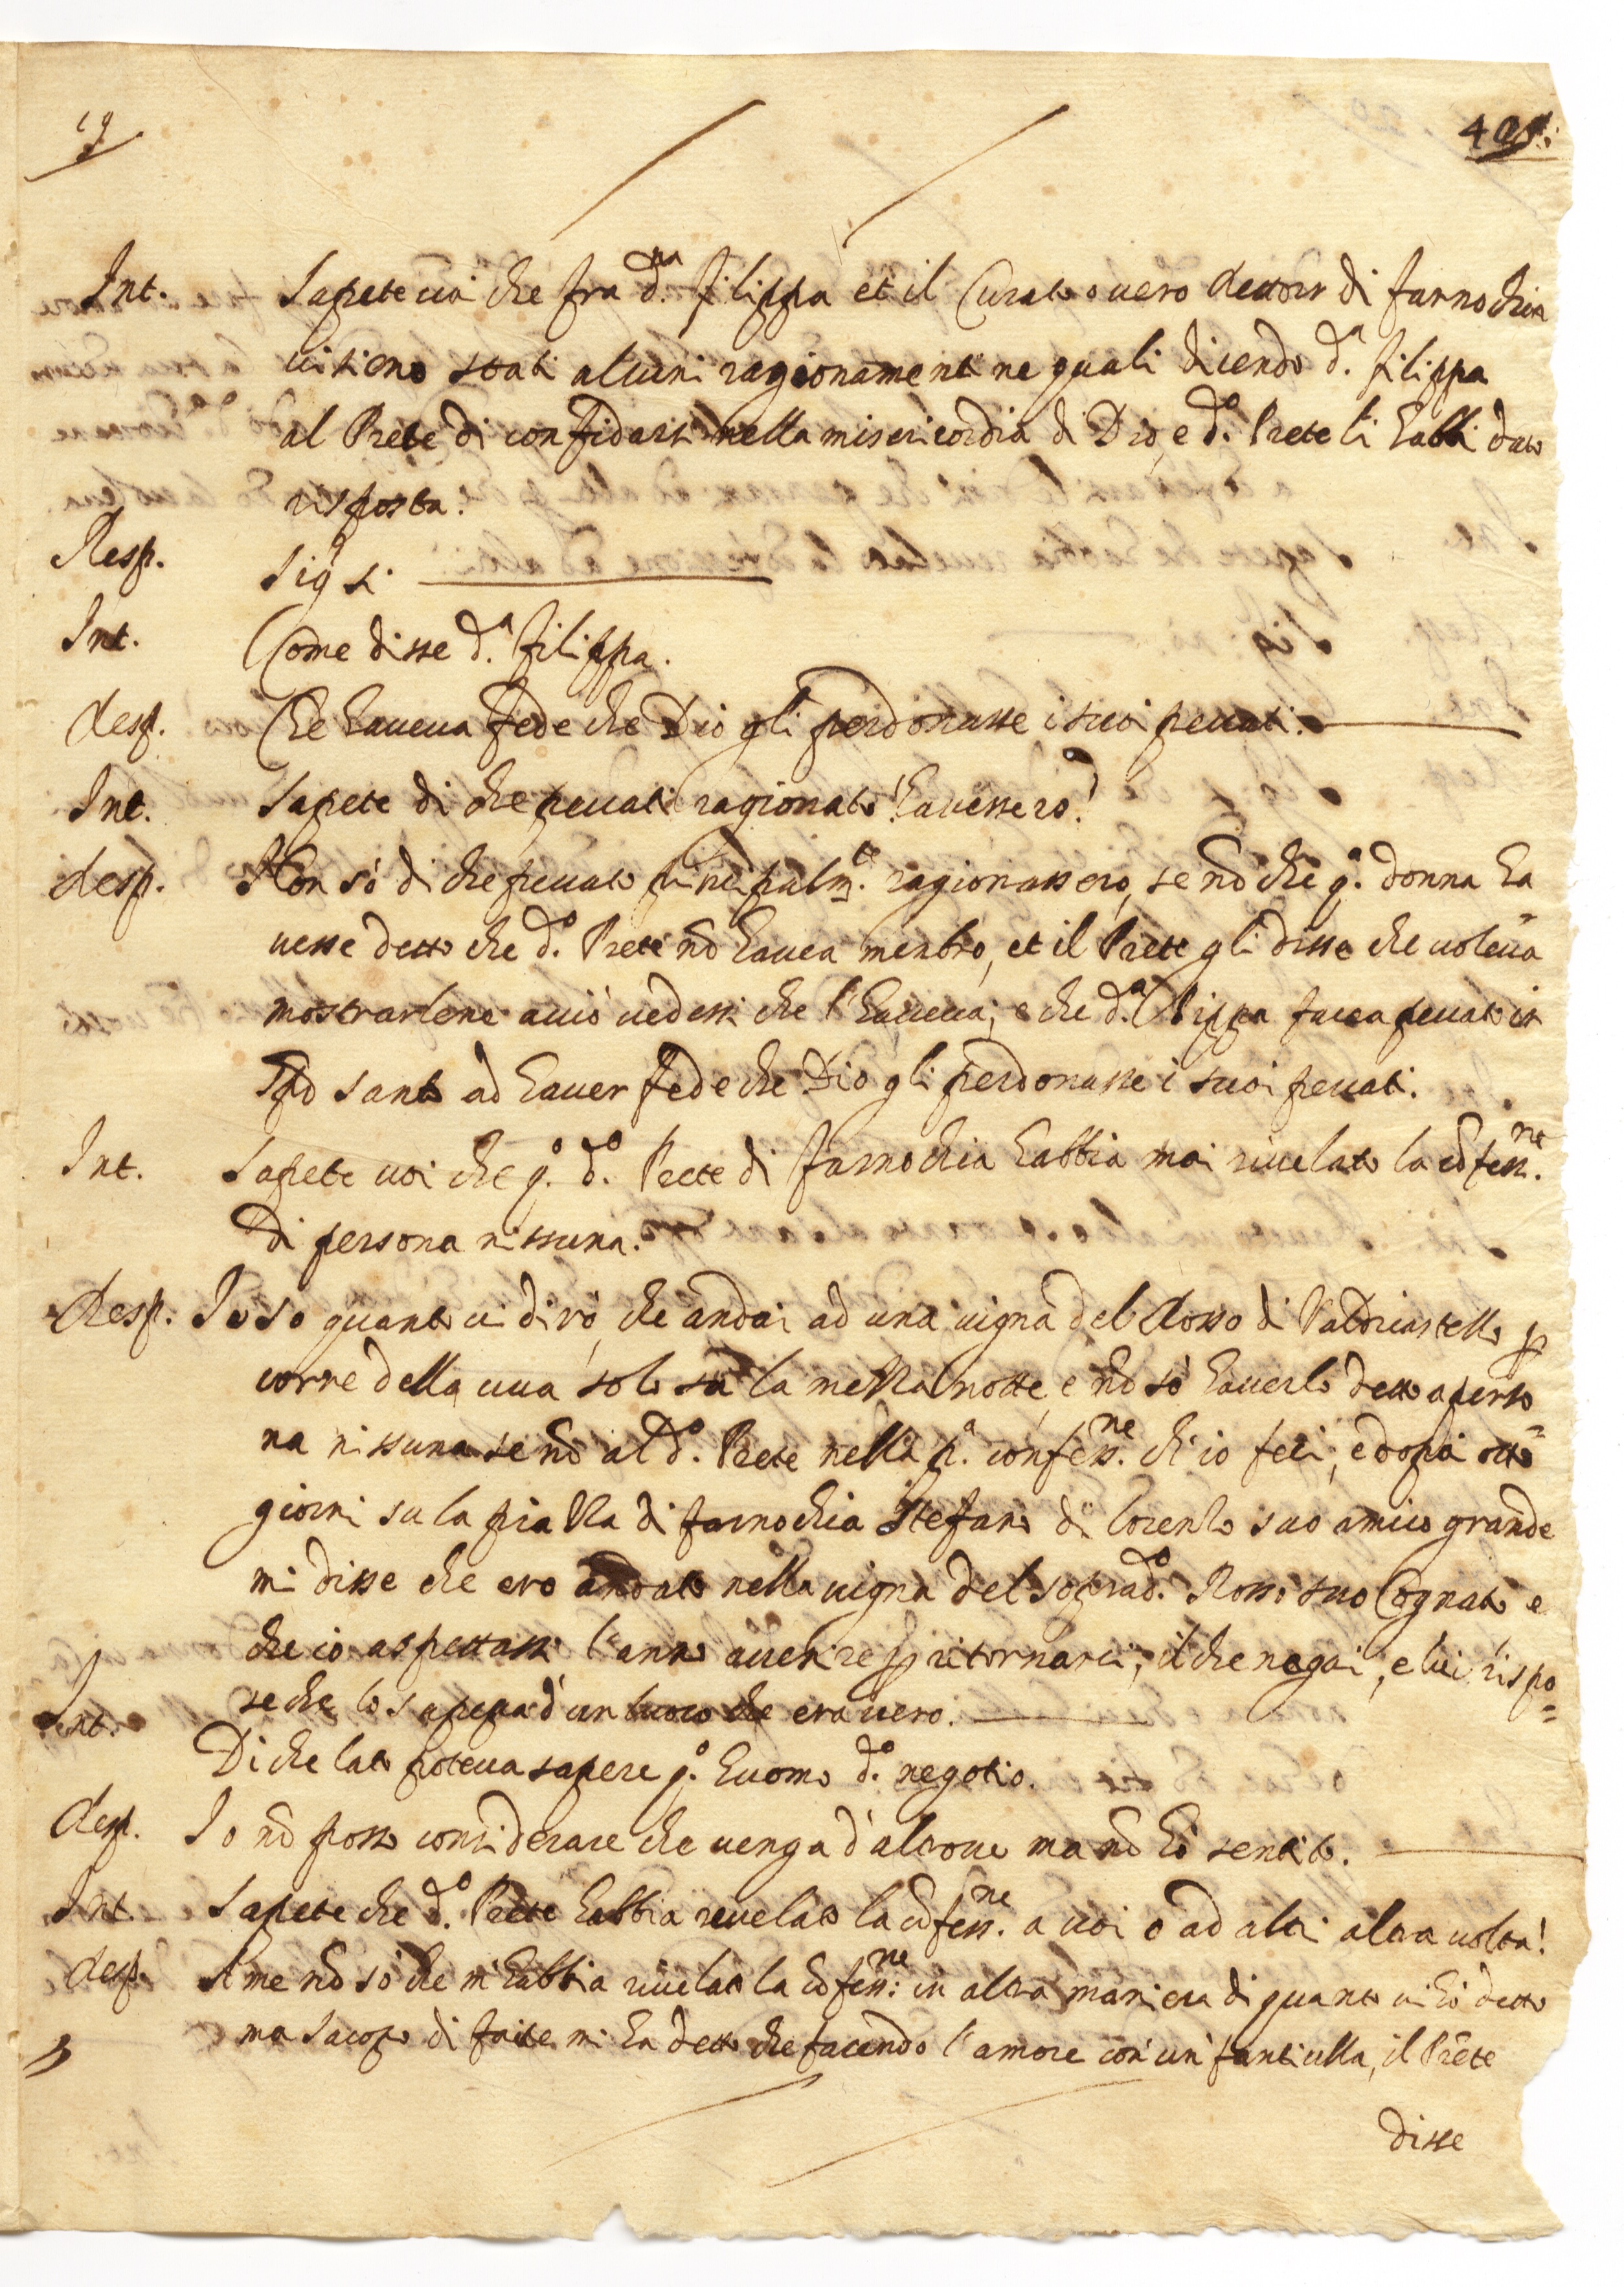 19
405.
Int. Sapete voi che fra d.ᵃ Filippa et il Curato o vero Rettor di Farnochia
vi sieno stati alcuni ragionamenti ne quali dicendo d.ᵃ Filippa
al Prete di confidarsi nella misericordia di Dio, e d.ᵒ Prete li habbi dato
risposta.
Resp. Sig.ʳ si.
Int. Come disse d.ᵃ Filippa.
Resp. Che haveva fede che Dio gli perdonasse i suoi peccati.
Int. Sapete di che peccati ragionato havessero?
Resp. Non sò di che peccato principalm.ᵗᵉ ragionassero, se nõ che q.ᵃ donna ha
vesse detto che d.ᵒ Prete nõ havea membro, et il Prete gli disse che voleva
mostrarlene acciò vedessi che l'haveva; e che d.ᵃ Filippa facea peccato in
Spõ santo ad haver fede che Dio gli perdonasse i suoi peccati.
Int. Sapete voi che q.ᵒ d.ᵒ Prete di Farnochia habbia mai rivelato la cõfess.ⁿᵉ
di persona nissuna.
Resp: Io so quanto vi dirò, che andai ad una vigna del Rosso di Valdicastello ꝑ
corre della uva solo su la mezza notte, e nõ sò haverlo detto a perso
na nissuna se nõ al d.ᵒ Prete nella p.ᵃ confess.ⁿᵉ ch'io feci, e dopoi otto
giorni su la piazza di Farnochia Stefano di Lorenzo suo amico grande
mi disse che ero andato nella vigna del soprad.ᵒ Rosso suo Cognato e
che io aspettassi l'anno avenire ꝑ ritornarci, il che negai, e lui rispo=
se che lo sapeva d'un luoco che era vero.
Int. Di che lato poteva sapere q.ᵒ huomo d.ᵒ negotio.
Resp. Io nõ posso considerare che venga d'altrove ma nõ hò sentito.
Int. Sapete che d.ᵒ Prete habbia revelato la cõfess.ⁿᵉ a voi o ad altri altra volta!
Resp. A me nõ sò che m'habbia rivelato la cõfess:ⁿᵉ in altra maniera di quanto vi hò detto
ma Jacopo di mi ha detto che facendo l'amore con un' fanciulla, il Prete
disse